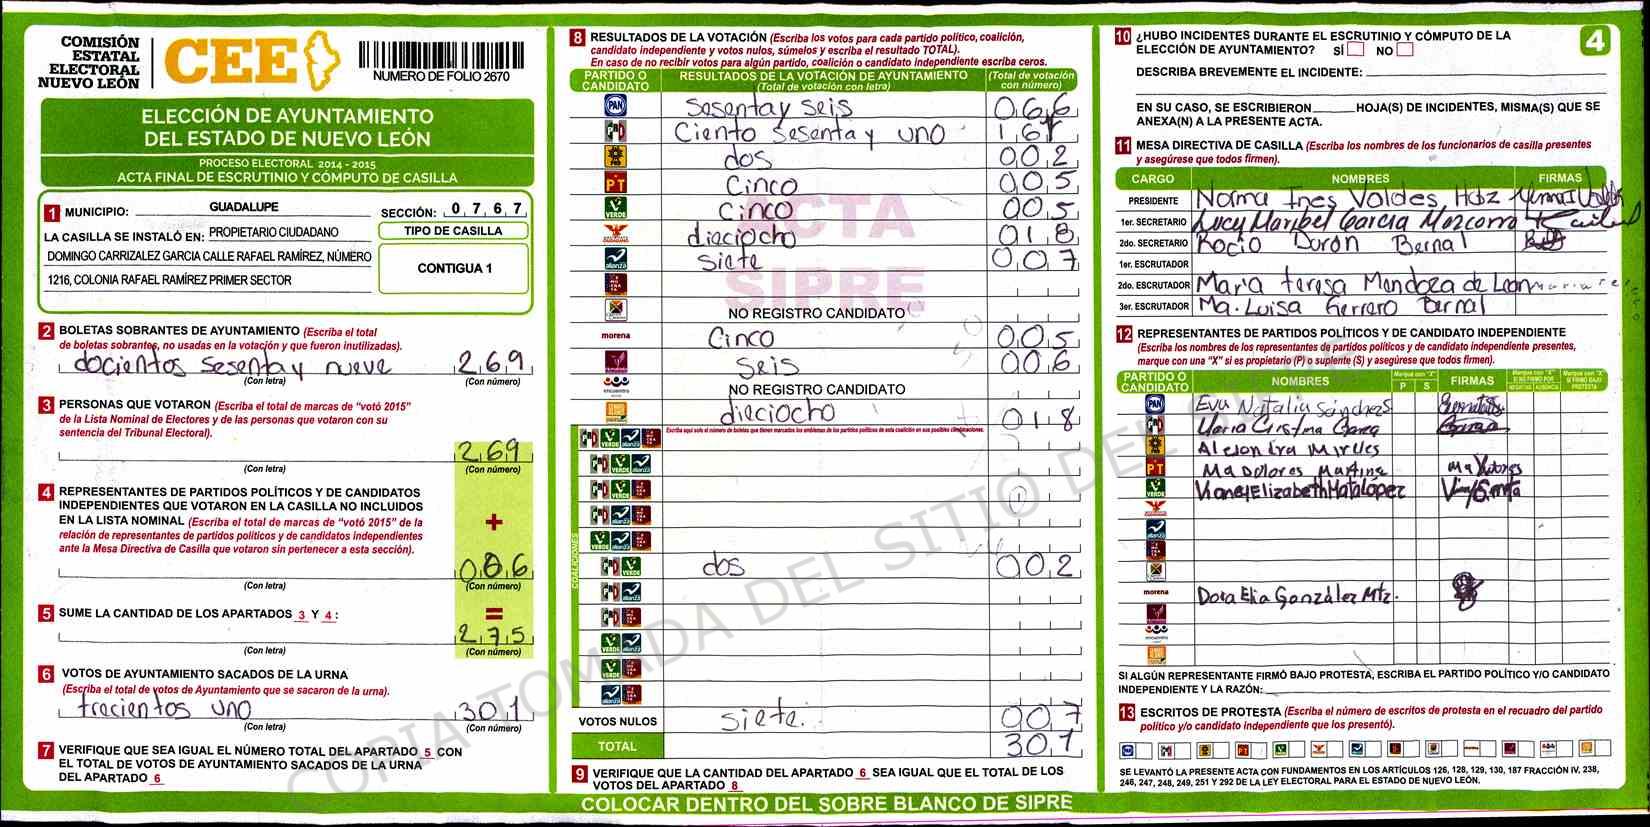 COMISIÓN
ESTATAL
ELECTORAL
NUEVO LEÓN
CEE
NUMERO DE FOLIO 2670
ELECCIÓN DE AYUNTAMIENTO
DEL ESTADO DE NUEVO LEÓN
PROCESO ELECTORAL 2014 - 2015
ACTA FINAL DE ESCRUTINIO Y CÓMPUTO DE CASILLA
1 MUNICIPIO: GUADALUPE SECCIÓN: 0 7 6 7
LA CASILLA SE INSTALÓ EN: PROPIETARIO CIUDADANO
DOMINGO CARRIZALEZ GARCIA CALLE RAFAEL RAMÍREZ, NÚMERO
1216, COLONIA RAFAEL RAMÍREZ PRIMER SECTOR
TIPO DE CASILLA
CONTIGUA 1
2 BOLETAS SOBRANTES DE AYUNTAMIENTO (Escriba el total
de boletas sobrantes, no usadas en la votación y que fueron inutilizadas).
docientos sesenta y nueve 2 6 9
(Con letra) (Con número)
3 PERSONAS QUE VOTARON (Escriba el total de marcas de "votó 2015"
de la Lista Nominal de Electores y de las personas que votaron con su
sentencia del Tribunal Electoral).
2 6 9
(Con letra) (Con número)
4 REPRESENTANTES DE PARTIDOS POLÍTICOS Y DE CANDIDATOS
INDEPENDIENTES QUE VOTARON EN LA CASILLA NO INCLUIDOS
EN LA LISTA NOMINAL (Escriba el total de marcas de "votó 2015" de la
relación de representantes de partidos políticos y de candidatos independientes
ante la Mesa Directiva de Casilla que votaron sin pertenecer a esta sección).
+
(Con letra) (Con número)
5 SUME LA CANTIDAD DE LOS APARTADOS 3 Y 4 : =
2 7 5
(Con letra) (Con número)
6 VOTOS DE AYUNTAMIENTO SACADOS DE LA URNA
(Escriba el total de votos de Ayuntamiento que se sacaron de la urna).
trecientos uno 3 0 1
(Con letra) (Con número)
7 VERIFIQUE QUE SEA IGUAL EL NÚMERO TOTAL DEL APARTADO 5 CON
EL TOTAL DE VOTOS DE AYUNTAMIENTO SACADOS DE LA URNA
DEL APARTADO 6
8 RESULTADOS DE LA VOTACIÓN (Escriba los votos para cada partido político, coalición,
candidato independiente y votos nulos, súmelos y escriba el resultado TOTAL).
En caso de no recibir votos para algún partido, coalición o candidato independiente escriba ceros.
PARTIDO O CANDIDATO RESULTADOS DE LA VOTACIÓN DE AYUNTAMIENTO (Total de votación con letra) (Total de votación con número)
PAN Sesenta y seis 0 6 6
Ciento sesenta y uno 1 6 1
PRD dos 0 0 2
PT Cinco 0 0 5
VERDE Cinco 0 0 5
dieciocho 0 1 8
alianza siete 0 0 7
ACTA
SIPRE
NO REGISTRO CANDIDATO
morena Cinco 0 0 5
Seis 0 0 6
encuentro NO REGISTRO CANDIDATO
dieciocho 0 1 8
Escriba aquí solo el número de boletas que tienen marcados los emblemas de los partidos políticos de esta coalición en sus posibles combinaciones.
COALICIONES
VERDE dos 0 0 2
VOTOS NULOS siete 0 0 7
TOTAL 3 0 1
9 VERIFIQUE QUE LA CANTIDAD DEL APARTADO 6 SEA IGUAL QUE EL TOTAL DE LOS
VOTOS DEL APARTADO 8
COLOCAR DENTRO DEL SOBRE BLANCO DE SIPRE
COPIA TOMADA DEL SITIO DE
10 ¿HUBO INCIDENTES DURANTE EL ESCRUTINIO Y CÓMPUTO DE LA
ELECCIÓN DE AYUNTAMIENTO? SÍ NO
4
DESCRIBA BREVEMENTE EL INCIDENTE:
EN SU CASO, SE ESCRIBIERON HOJA(S) DE INCIDENTES, MISMA(S) QUE SE
ANEXA(N) A LA PRESENTE ACTA.
11 MESA DIRECTIVA DE CASILLA (Escriba los nombres de los funcionarios de casilla presentes
y asegúrese que todos firmen).
CARGO NOMBRES FIRMAS
PRESIDENTE Norma Ines Valdes Hdz
1er. SECRETARIO Lucy Maribel Garcia Mozcorro
2do. SECRETARIO Rocio Duron Bernal
1er. ESCRUTADOR
2do. ESCRUTADOR Maria teresa Mendoza de Leon
3er. ESCRUTADOR Ma. Luisa Herrero Bernal
12 REPRESENTANTES DE PARTIDOS POLÍTICOS Y DE CANDIDATO INDEPENDIENTE
(Escriba los nombres de los representantes de partidos políticos y de candidato independiente presentes,
marque con una "X" si es propietario (P) o suplente (S) y asegúrese que todos firmen).
PARTIDO O CANDIDATO NOMBRES P S FIRMAS
PAN Eva Natalia Sánchez
Maria Cristina Garza
PT Ma Dolores Martine
VERDE Vianey Elizabeth Mata López
morena Dora Elia González Mtz.
SI ALGÚN REPRESENTANTE FIRMÓ BAJO PROTESTA, ESCRIBA EL PARTIDO POLÍTICO Y/O CANDIDATO
INDEPENDIENTE Y LA RAZÓN:
13 ESCRITOS DE PROTESTA (Escriba el número de escritos de protesta en el recuadro del partido
político y/o candidato independiente que los presentó).
SE LEVANTÓ LA PRESENTE ACTA CON FUNDAMENTOS EN LOS ARTÍCULOS 126, 128, 129, 130, 187 FRACCIÓN IV, 238,
246, 247, 248, 249, 251 Y 292 DE LA LEY ELECTORAL PARA EL ESTADO DE NUEVO LEÓN.